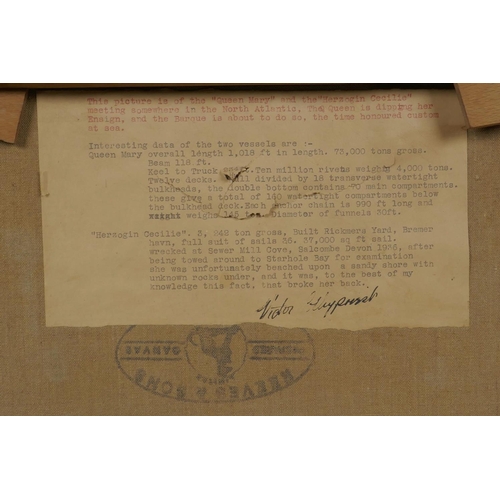 This picture is of the "Queen Mary" and the "Herzogin Cecilie"
meeting somewhere in the North Atlantic. The Queen is dipping her
Ensign, and the Barque is about to do so, the time honoured custom
at sea.
Interesting data of the two vessels are :-
Queen Mary overall length 1,018 ft in length. 73,000 tons gross.
Beam 118 ft.
Keel to Truck Ten million rivets weight 4,000 tons.
Twelve decks. divided by 18 transverse watertight
bulkheads, the double bottom contains 70 main compartments.
these give a total of 140 watertight compartments below
the bulkhead deck. Each anchor chain is 990 ft long and
weighs 145 ton. Diameter of funnels 30ft.
"Herzogin Cecilie". 3, 242 ton gross. Built Rickmers Yard, Bremer
havn, full suit of sails 36. 37,000 sq ft sail.
wrecked at Sewer Mill Cove, Salcombe Devon 1936, after
being towed around to Starhole Bay for examination
she was unfortunately beached upon a sandy shore with
unknown rocks under, and it was, to the best of my
knowledge this fact, that broke her back.
Victor
REEVES & SONS
LIMITED
CANVAS